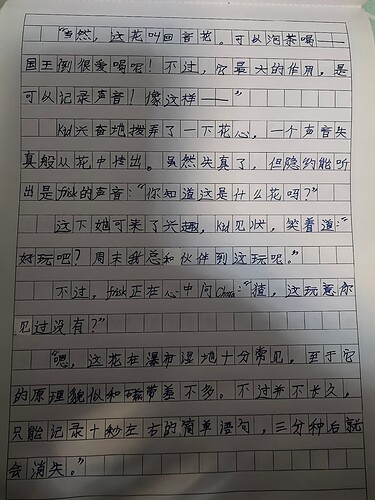 “当然，这花叫回音花。可以泡茶喝——
国王倒很爱喝呢！不过，它最大的作用，是
可以记录声音！像这样——”
Kid兴奋地拨弄了一下花心，一个声音失
真般从花中传出。虽然失真了，但隐约能听
出是frisk的声音：“你知道这是什么花吗？”
这下她可来了兴趣，Kid见状，笑着道：“
好玩吧？周末我总和伙伴到这玩呢。”
不过，frisk正在心中问Chara：“猹，这玩意你
见过没有？”
“嗯，这花在瀑布湿地十分常见，至于它
的原理貌似和磁带差不多。不过并不长久，
只能记录十秒左右的简单语句，三分种后就
会消失。”